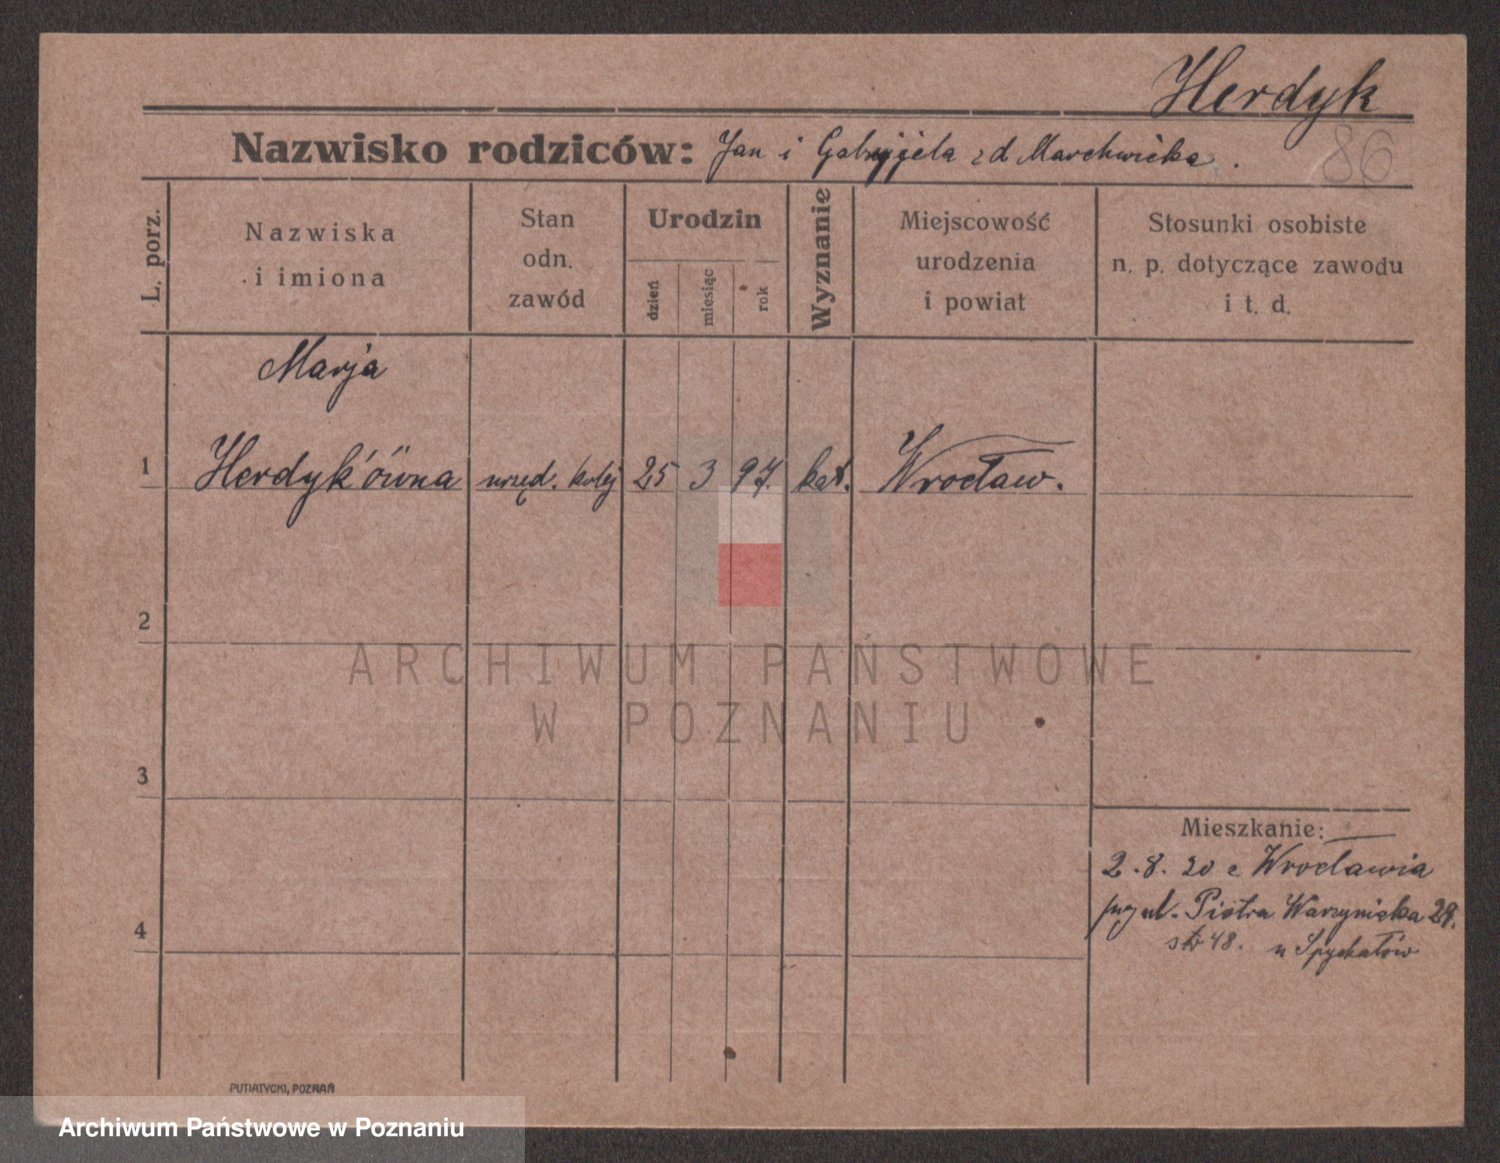 Herdyk
86
Nazwisko rodziców: Jan i Gabryjela z d Marchwicka.
L. porz.
Nazwiska
i imiona
Stan
odn.
zawód
Urodzin
dzień
miesiąc
rok
Wyznanie
Miejscowość
urodzenia
i powiat
Stosunki osobiste
n. p. dotyczące zawodu
i t. d.
Marja
1 Herdyk'ówna urzęd. kolej 25 3 97. kat. Wrocław.
2
ARCHIWUM PAŃSTWOWE
W POZNANIU
3
Mieszkanie:
2.8.20 z Wrocławia
ul. Piotra Wawrzyniaka 29.
4
str 48. u Spychałów
PUTIATYCKI, POZNAŃ
Archiwum Państwowe w Poznaniu